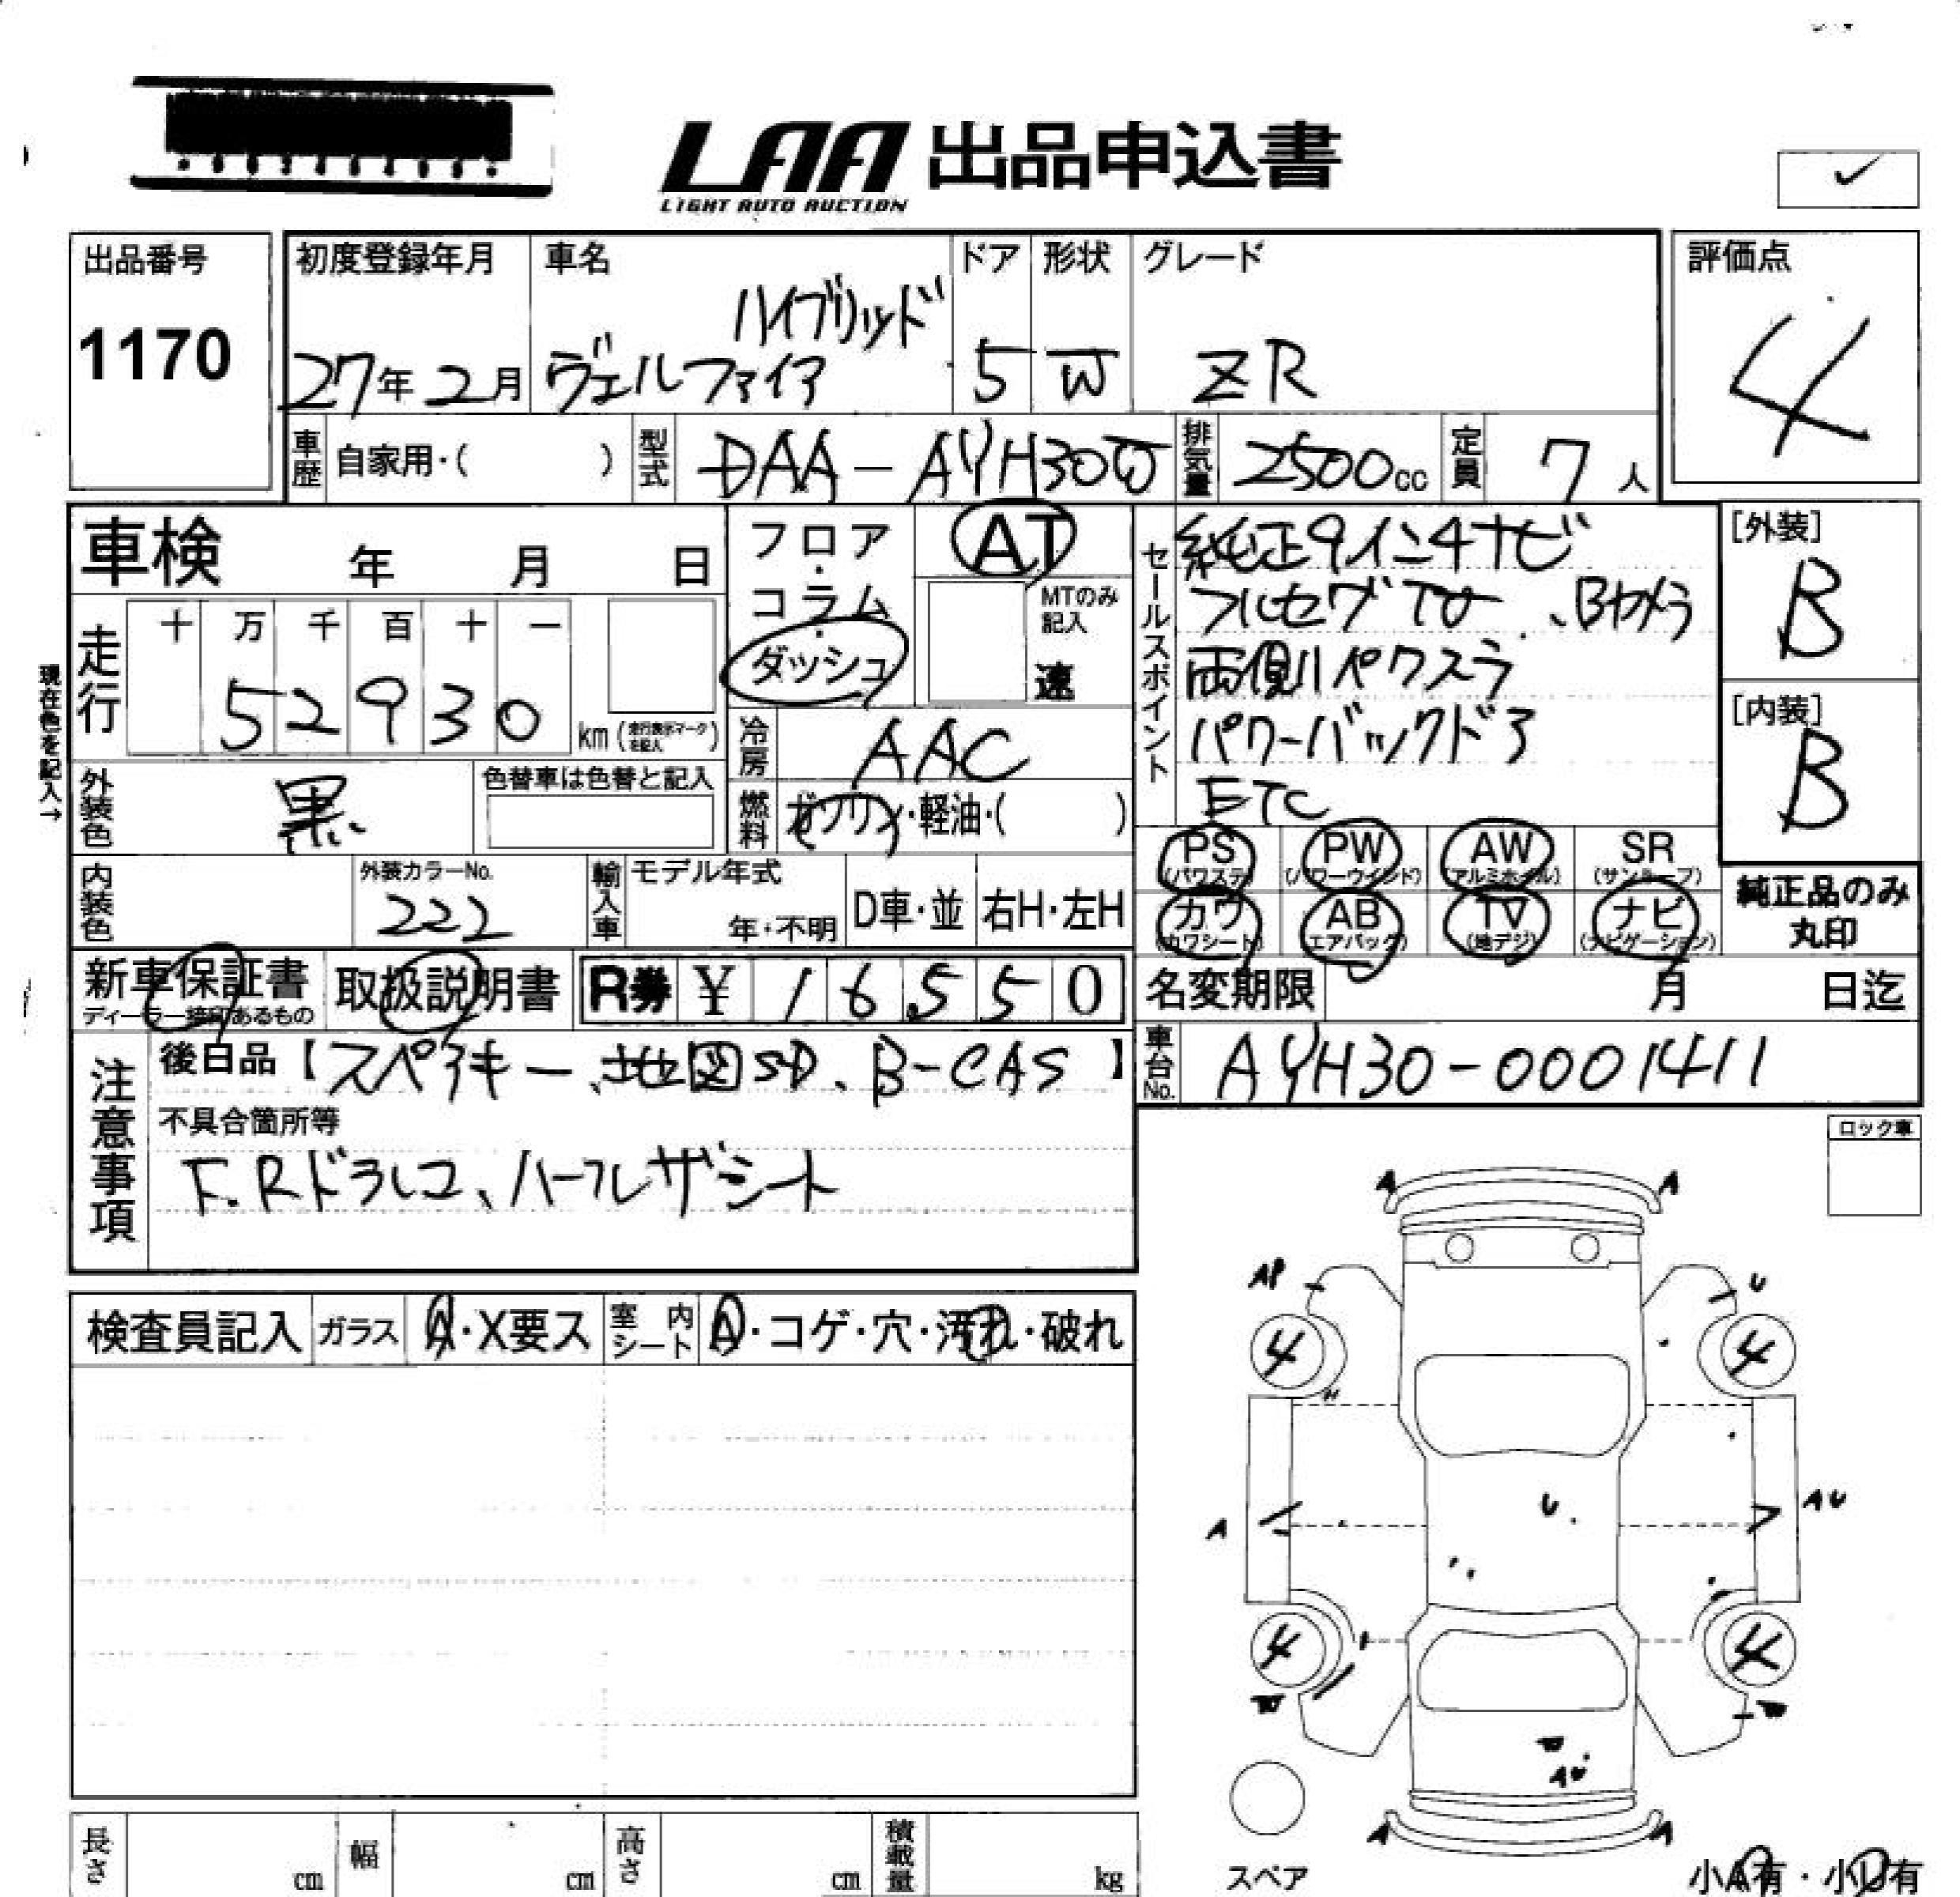 LAA 出品申込書
LIGHT AUTO AUCTION
出品番号
1170
初度登録年月
27年2月
車名
ハイブリッド
ヴェルファイア
ドア
5
形状
W
グレード
ZR
評価点
4
車歴
自家用・( )
型式
DAA-AYH30W
排気量
2500cc
定員
7人
車検 年 月 日
フロア・コラム・ダッシュ
AT
MTのみ記入
速
セールスポイント
純正9インチナビ
フルセグTV、Bカメラ
両側パワスラ
パワーバックドア
ETC
[外装]
B
[内装]
B
現在色を記入→
走行
十 万 千 百 十 一
5 2 9 3 0
km(走行表示マークを記入)
冷房
AAC
外装色
黒
色替車は色替と記入
燃料
ガソリン・軽油・( )
PS (パワステ)
PW (パワーウインド)
AW (アルミホイル)
SR (サンルーフ)
カワ (カワシート)
AB (エアバック)
TV (地デジ)
ナビ (ナビゲーション)
純正品のみ丸印
内装色
外装カラーNo.
222
輸入車
モデル年式
年・不明
D車・並
右H・左H
新車保証書
ディーラー捺印あるもの
取扱説明書
R券 ¥ 1 6 5 5 0
名変期限 月 日迄
車台No.
AYH30-0001411
注意事項
後日品【スペアキー、地図SD、B-CAS】
不具合箇所等
F.Rドラレコ、ハーフレザーシート
ロック車
検査員記入
ガラス
A・X要ス
室内シート
A・コゲ・穴・汚れ・破れ
A A
AP U
4 4
U
A AU
4 4
W W
W
AU
A A
スペア
小A有・小U有
長さ cm
幅 cm
高さ cm
積載量 kg